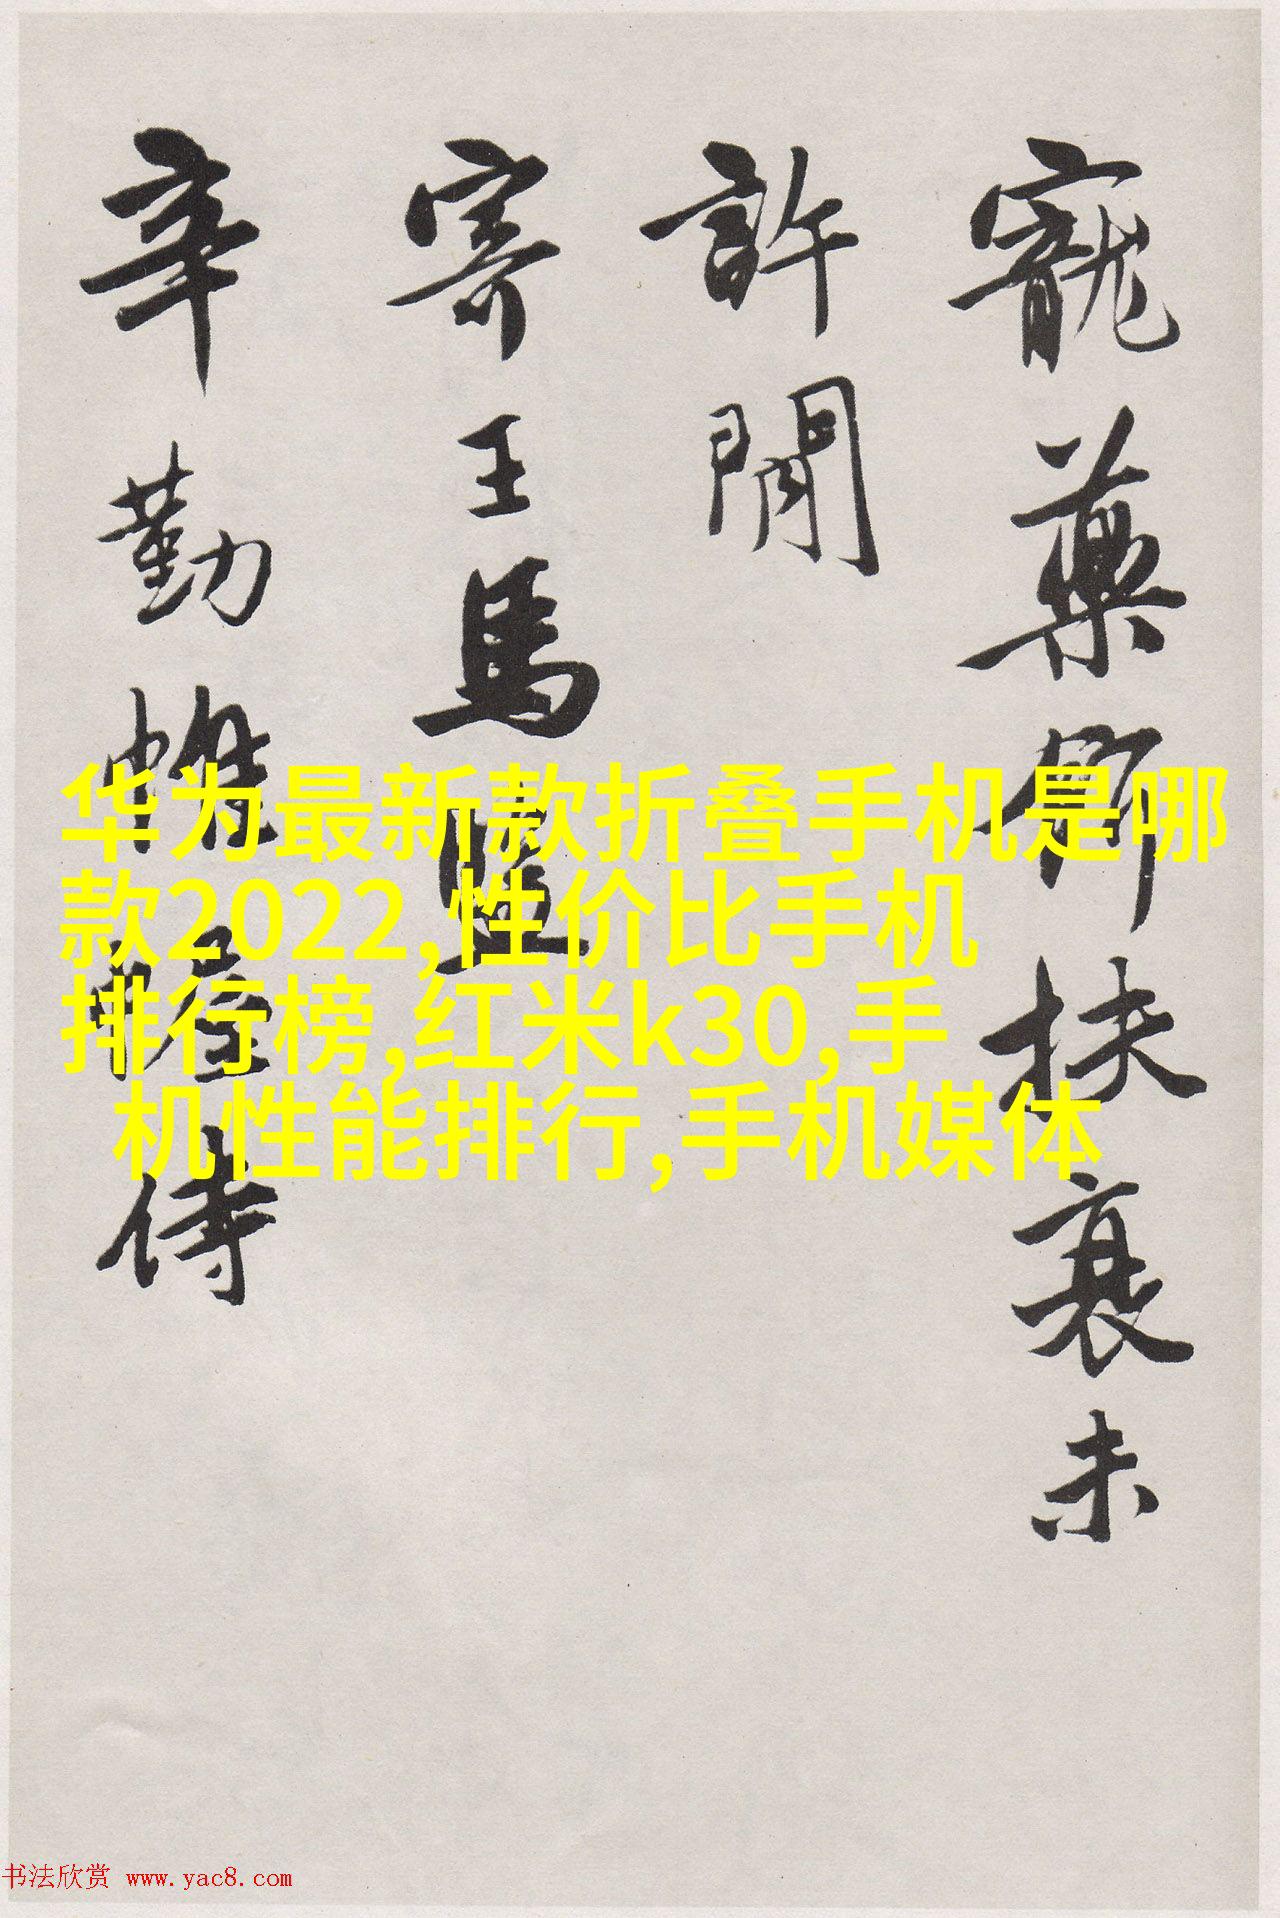 寵藥扶衰未
許閒
寄王馬監
辛勤帷幄侍
华为最新款折叠手机是哪
款2022,性价比手机
排行榜,红米k30,手
机性能排行,手机媒体
书法欣赏 www.yac8.com